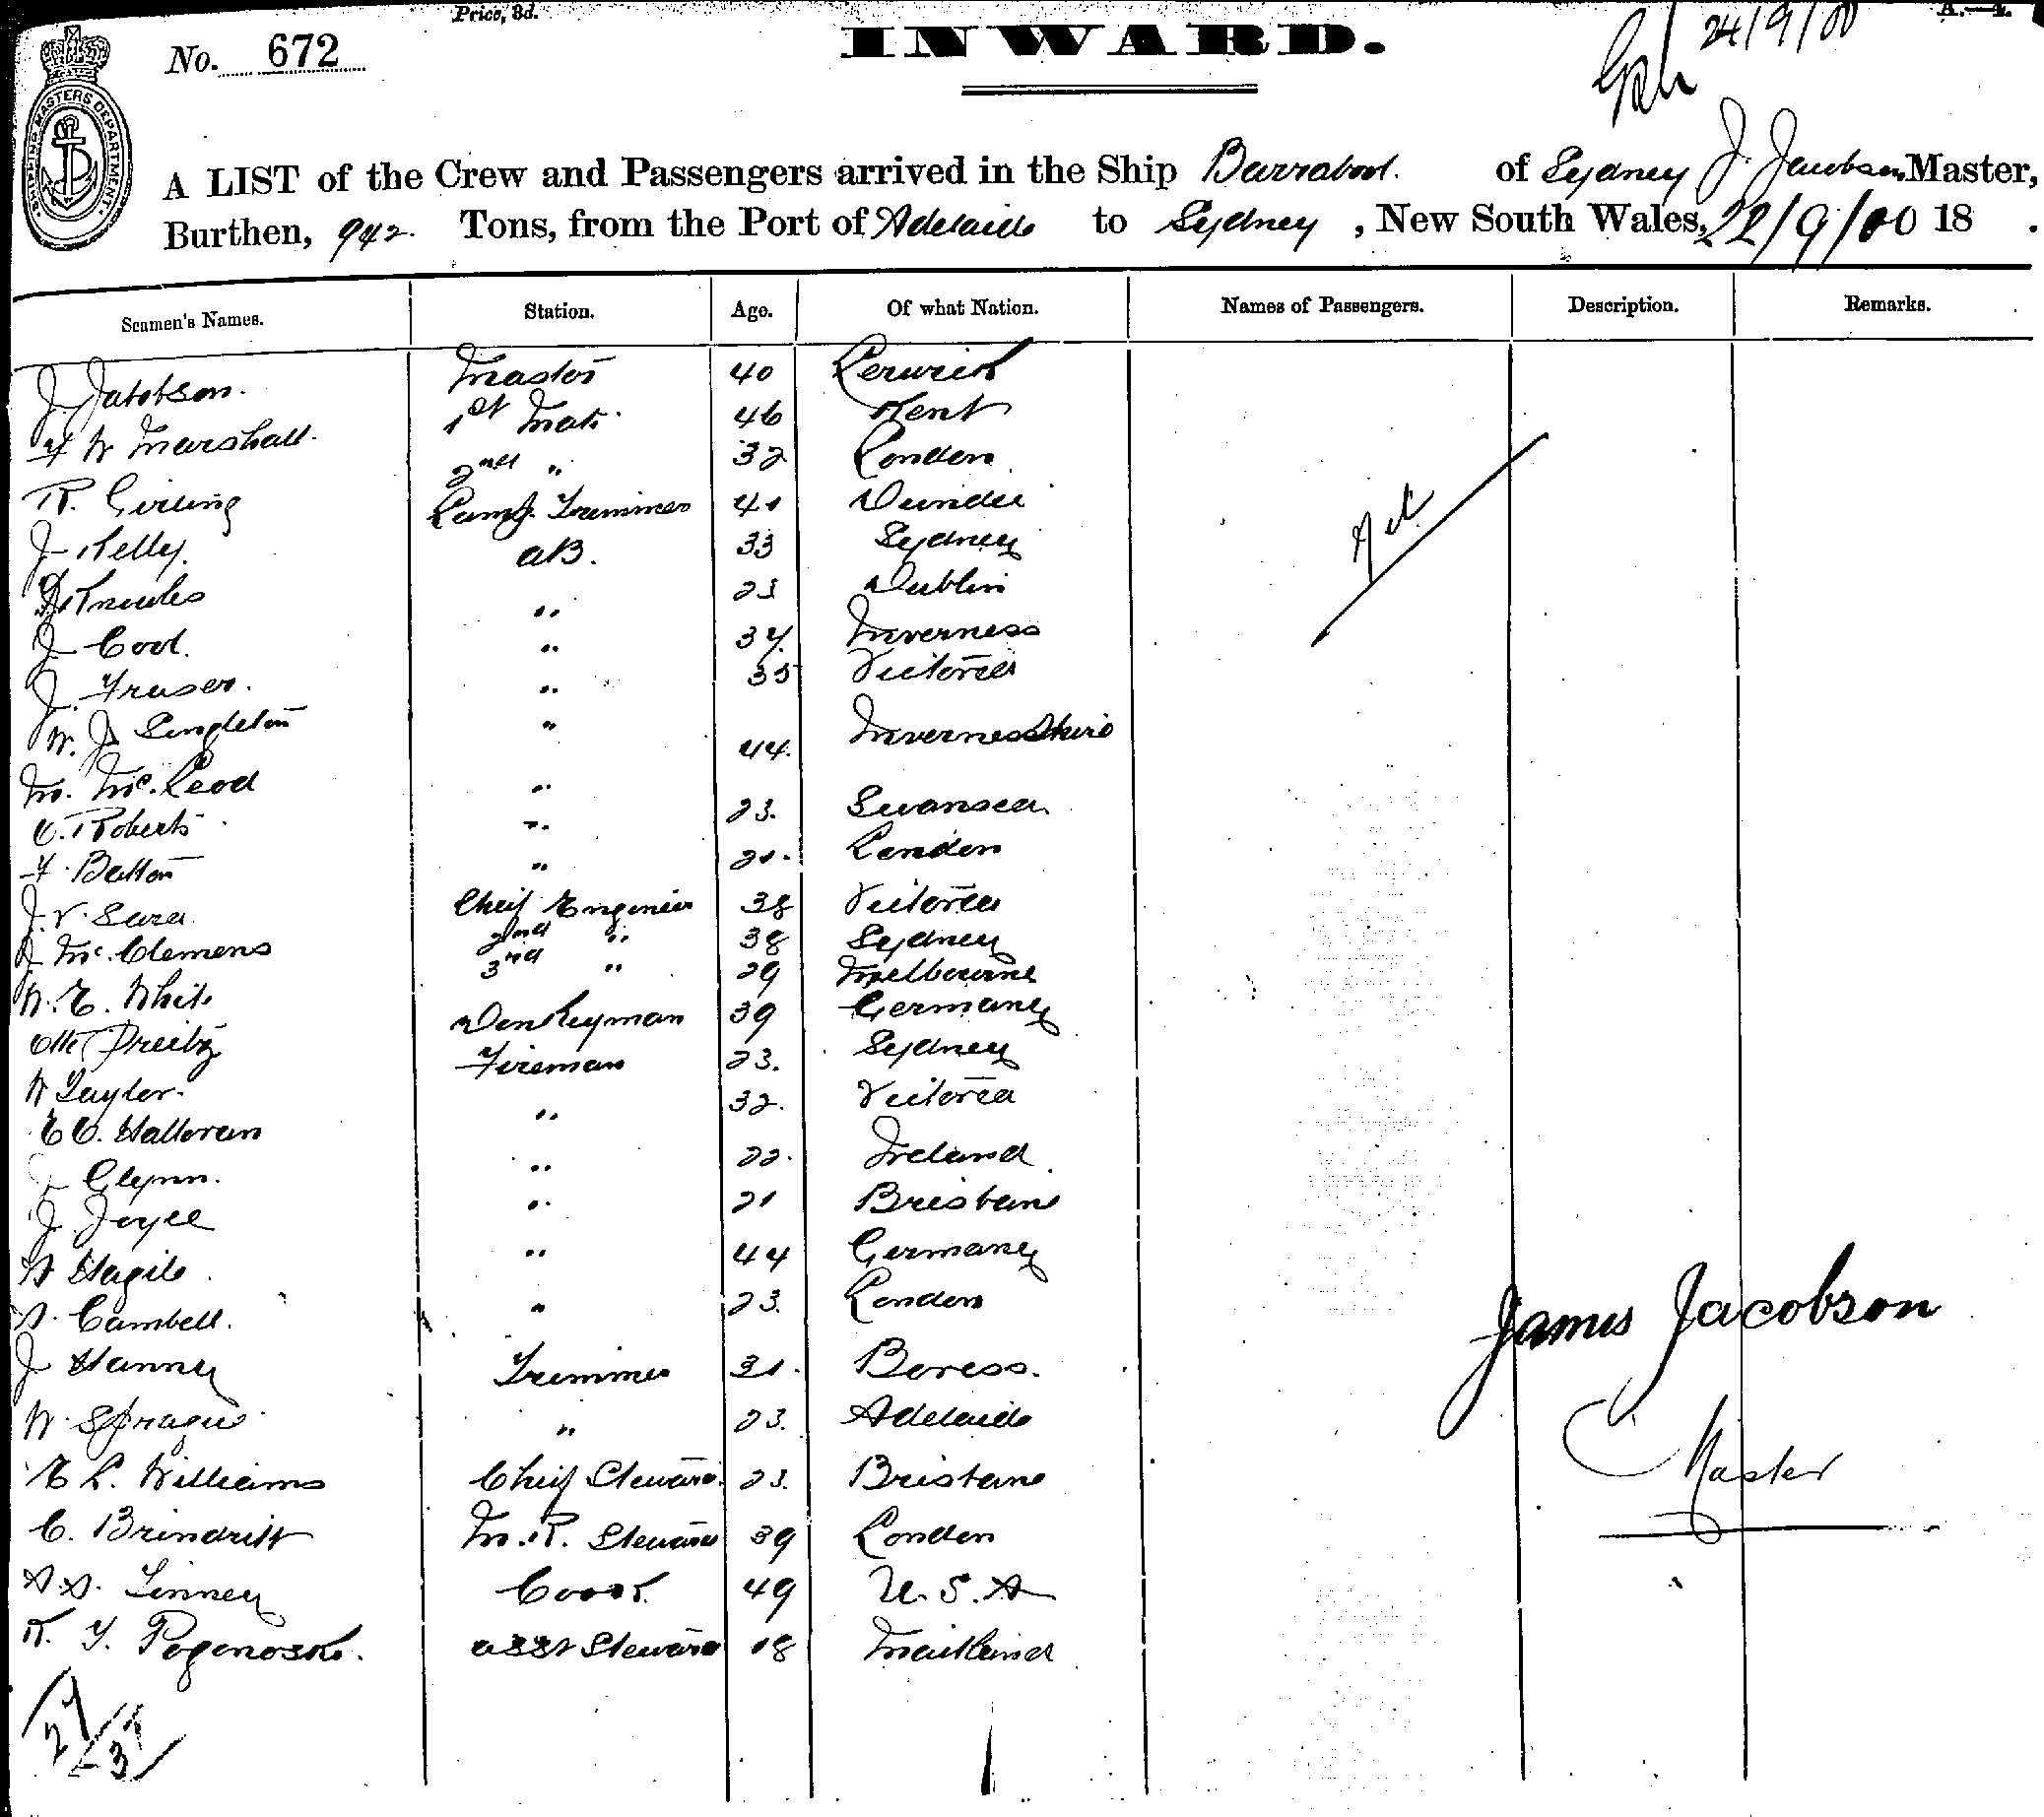 Price, 3d.
A.—4.
No. 672
INWARD.
24/9/00
SHIPPING MASTERS DEPARTMENT
A LIST of the Crew and Passengers arrived in the Ship Barrabool. of Sydney J. Jacobson Master,
Burthen, 942. Tons, from the Port of Adelaide to Sydney, New South Wales, 22/9/00 18 .
Seamen's Names. Station. Age. Of what Nation. Names of Passengers. Description. Remarks.
J. Jacobson. Master 40 Lerwick
F W Marshall. 1st Mate 46 Kent
R. Girling 2nd " 32 London
J Kelly. Lamp Trimmer 41 Dundee
Knowles AB. 33 Sydney
J Cool. " 23 Dublin
J. Fraser. " 37. Inverness
W. J. Singleton " 35 Victoria
M. McLeod " 44. Invernesshire
C. Roberts " 23. Swansea
F. Batton " 21. London
J. V. Sara Chief Engineer 38 Victoria
J McClemens 2nd " 38 Sydney
W. E. White 3rd " 29 Melbourne
Otto Preitz Donkeyman 39 Germany
W Taylor. Fireman 23. Sydney
E C. Halloran " 32. Victoria
J Glynn. " 22. Ireland
J. Joyce " 21 Brisbane
" 44 Germany
A. Cambell. " 23. London
J Hanney Trimmer 31.
W. Sprague " 23. Adelaide
E L. Williams Chief Steward 23. Brisbane
C. Brindritt M. R. Steward 39 London
A. A. Linney Cook 49 U. S. A
R. Y. Pogonoski. Asst Steward 18 Maitland
Nil
James Jacobson
Master
27